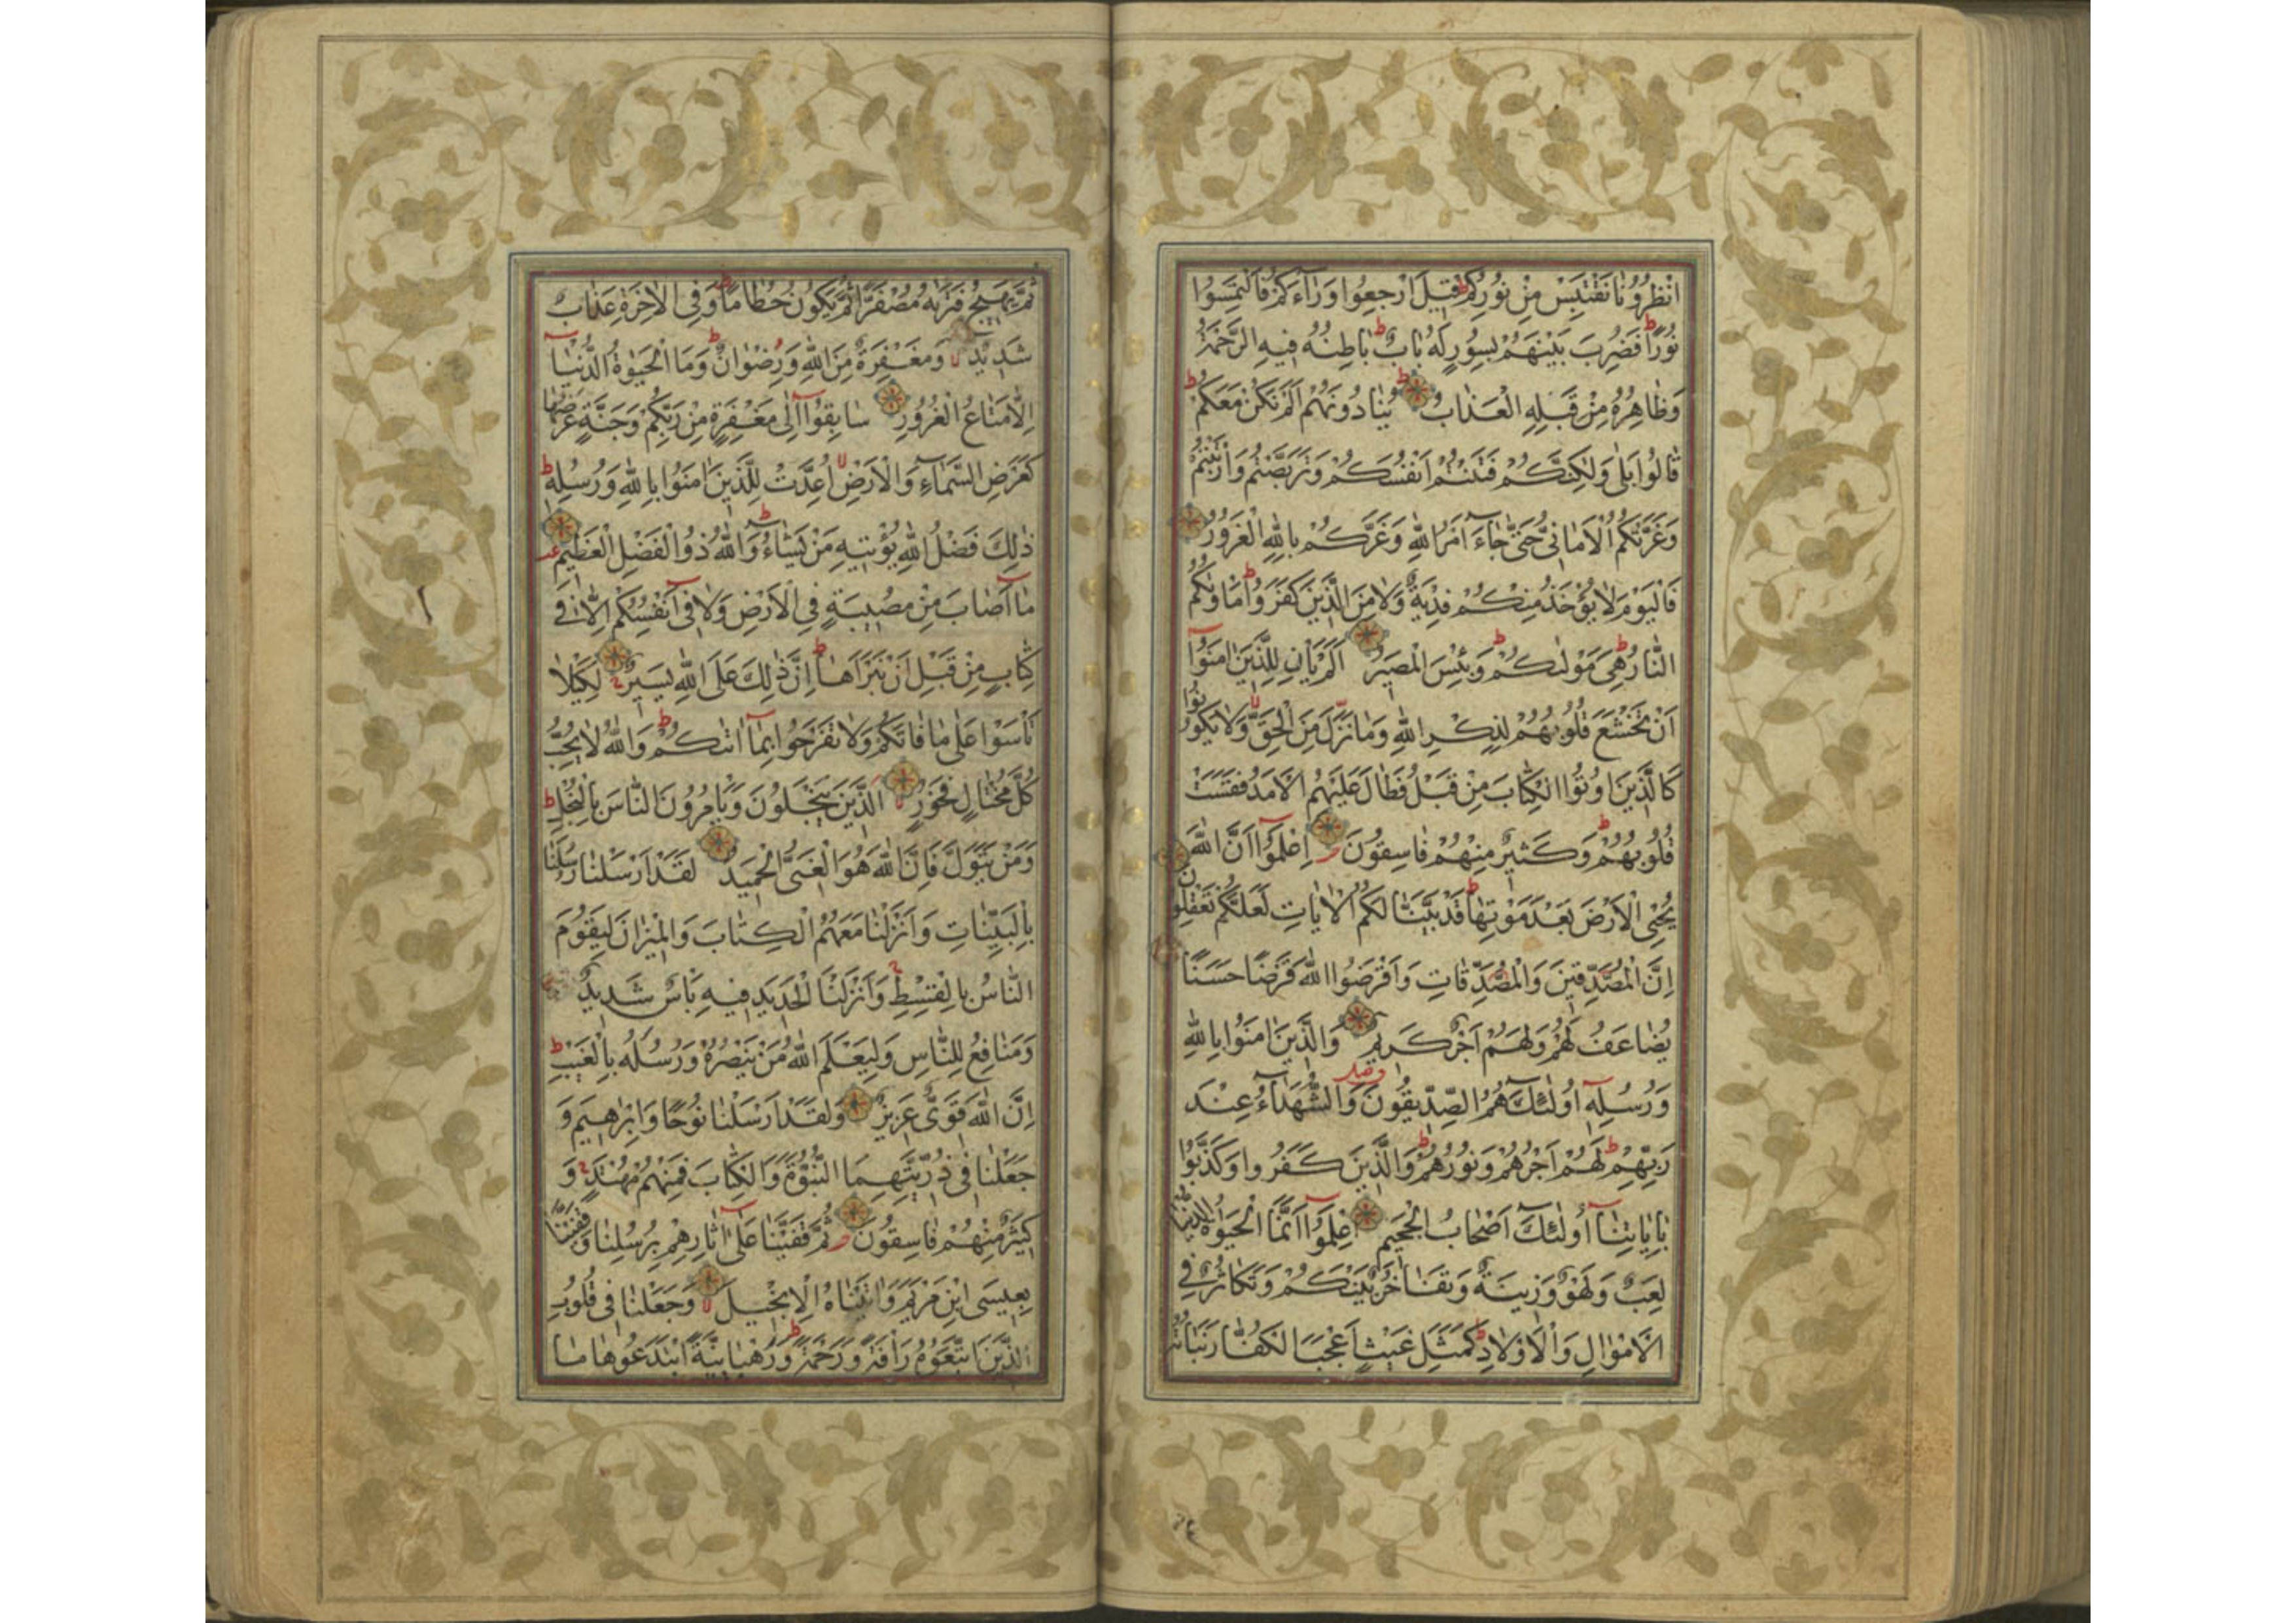 انْظُرُونَا نَقْتَبِسْ مِنْ نُورِكُمْ قِيلَ ارْجِعُوا وَرَاءَكُمْ فَالْتَمِسُوا
نُورًا فَضُرِبَ بَيْنَهُمْ بِسُورٍ لَهُ بَابٌ بَاطِنُهُ فِيهِ الرَّحْمَةُ
وَظَاهِرُهُ مِنْ قِبَلِهِ الْعَذَابُ يُنَادُونَهُمْ أَلَمْ نَكُنْ مَعَكُمْ
قَالُوا بَلٰى وَلٰكِنَّكُمْ فَتَنْتُمْ أَنْفُسَكُمْ وَتَرَبَّصْتُمْ وَارْتَبْتُمْ
وَغَرَّتْكُمُ الْأَمَانِيُّ حَتّٰى جَاءَ أَمْرُ اللّٰهِ وَغَرَّكُمْ بِاللّٰهِ الْغَرُورُ
فَالْيَوْمَ لَا يُؤْخَذُ مِنْكُمْ فِدْيَةٌ وَلَا مِنَ الَّذِينَ كَفَرُوا مَأْوٰيكُمُ
النَّارُ هِيَ مَوْلٰيكُمْ وَبِئْسَ الْمَصِيرُ أَلَمْ يَأْنِ لِلَّذِينَ اٰمَنُوا
أَنْ تَخْشَعَ قُلُوبُهُمْ لِذِكْرِ اللّٰهِ وَمَا نَزَلَ مِنَ الْحَقِّ وَلَا يَكُونُوا
كَالَّذِينَ أُوتُوا الْكِتَابَ مِنْ قَبْلُ فَطَالَ عَلَيْهِمُ الْأَمَدُ فَقَسَتْ
قُلُوبُهُمْ وَكَثِيرٌ مِنْهُمْ فَاسِقُونَ اِعْلَمُوا أَنَّ اللّٰهَ
يُحْيِي الْأَرْضَ بَعْدَ مَوْتِهَا قَدْ بَيَّنَّا لَكُمُ الْاٰيَاتِ لَعَلَّكُمْ تَعْقِلُونَ
إِنَّ الْمُصَّدِّقِينَ وَالْمُصَّدِّقَاتِ وَأَقْرَضُوا اللّٰهَ قَرْضًا حَسَنًا
يُضَاعَفُ لَهُمْ وَلَهُمْ أَجْرٌ كَرِيمٌ وَالَّذِينَ اٰمَنُوا بِاللّٰهِ
وَرُسُلِهِ أُولٰئِكَ هُمُ الصِّدِّيقُونَ وَالشُّهَدَاءُ عِنْدَ
رَبِّهِمْ لَهُمْ أَجْرُهُمْ وَنُورُهُمْ وَالَّذِينَ كَفَرُوا وَكَذَّبُوا
بِاٰيَاتِنَا أُولٰئِكَ أَصْحَابُ الْجَحِيمِ اِعْلَمُوا أَنَّمَا الْحَيٰوةُ الدُّنْيَا
لَعِبٌ وَلَهْوٌ وَزِينَةٌ وَتَفَاخُرٌ بَيْنَكُمْ وَتَكَاثُرٌ فِي
الْأَمْوَالِ وَالْأَوْلَادِ كَمَثَلِ غَيْثٍ أَعْجَبَ الْكُفَّارَ نَبَاتُهُ
ثُمَّ يَهِيجُ فَتَرٰيهُ مُصْفَرًّا ثُمَّ يَكُونُ حُطَامًا وَفِي الْاٰخِرَةِ عَذَابٌ
شَدِيدٌ وَمَغْفِرَةٌ مِنَ اللّٰهِ وَرِضْوَانٌ وَمَا الْحَيٰوةُ الدُّنْيَا
إِلَّا مَتَاعُ الْغُرُورِ سَابِقُوا إِلٰى مَغْفِرَةٍ مِنْ رَبِّكُمْ وَجَنَّةٍ عَرْضُهَا
كَعَرْضِ السَّمَاءِ وَالْأَرْضِ أُعِدَّتْ لِلَّذِينَ اٰمَنُوا بِاللّٰهِ وَرُسُلِهِ
ذٰلِكَ فَضْلُ اللّٰهِ يُؤْتِيهِ مَنْ يَشَاءُ وَاللّٰهُ ذُو الْفَضْلِ الْعَظِيمِ
مَا أَصَابَ مِنْ مُصِيبَةٍ فِي الْأَرْضِ وَلَا فِي أَنْفُسِكُمْ إِلَّا فِي
كِتَابٍ مِنْ قَبْلِ أَنْ نَبْرَأَهَا إِنَّ ذٰلِكَ عَلَى اللّٰهِ يَسِيرٌ لِكَيْلَا
تَأْسَوْا عَلٰى مَا فَاتَكُمْ وَلَا تَفْرَحُوا بِمَا اٰتٰيكُمْ وَاللّٰهُ لَا يُحِبُّ
كُلَّ مُخْتَالٍ فَخُورٍ اَلَّذِينَ يَبْخَلُونَ وَيَأْمُرُونَ النَّاسَ بِالْبُخْلِ
وَمَنْ يَتَوَلَّ فَإِنَّ اللّٰهَ هُوَ الْغَنِيُّ الْحَمِيدُ لَقَدْ أَرْسَلْنَا رُسُلَنَا
بِالْبَيِّنَاتِ وَأَنْزَلْنَا مَعَهُمُ الْكِتَابَ وَالْمِيزَانَ لِيَقُومَ
النَّاسُ بِالْقِسْطِ وَأَنْزَلْنَا الْحَدِيدَ فِيهِ بَأْسٌ شَدِيدٌ
وَمَنَافِعُ لِلنَّاسِ وَلِيَعْلَمَ اللّٰهُ مَنْ يَنْصُرُهُ وَرُسُلَهُ بِالْغَيْبِ
إِنَّ اللّٰهَ قَوِيٌّ عَزِيزٌ وَلَقَدْ أَرْسَلْنَا نُوحًا وَإِبْرٰهِيمَ وَ
جَعَلْنَا فِي ذُرِّيَّتِهِمَا النُّبُوَّةَ وَالْكِتَابَ فَمِنْهُمْ مُهْتَدٍ وَ
كَثِيرٌ مِنْهُمْ فَاسِقُونَ ثُمَّ قَفَّيْنَا عَلٰى اٰثَارِهِمْ بِرُسُلِنَا وَقَفَّيْنَا
بِعِيسَى ابْنِ مَرْيَمَ وَاٰتَيْنَاهُ الْإِنْجِيلَ وَجَعَلْنَا فِي قُلُوبِ
الَّذِينَ اتَّبَعُوهُ رَأْفَةً وَرَحْمَةً وَرَهْبَانِيَّةً ابْتَدَعُوهَا مَا